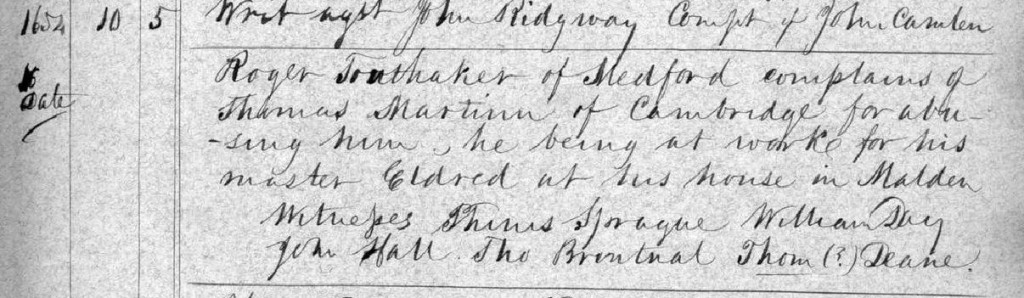 1654 10 5 Writ agst John Ridgway Compt of John Camden
Roger Touthaker of Medford complains of
Date Thomas Martinn of Cambridge for abu-
-sing him, he being at work for his
master Eldred at his house in Malden
Witnesses Thinis Sprague William Day
John Hall. Tho Brontnal Thom (?) Deane.